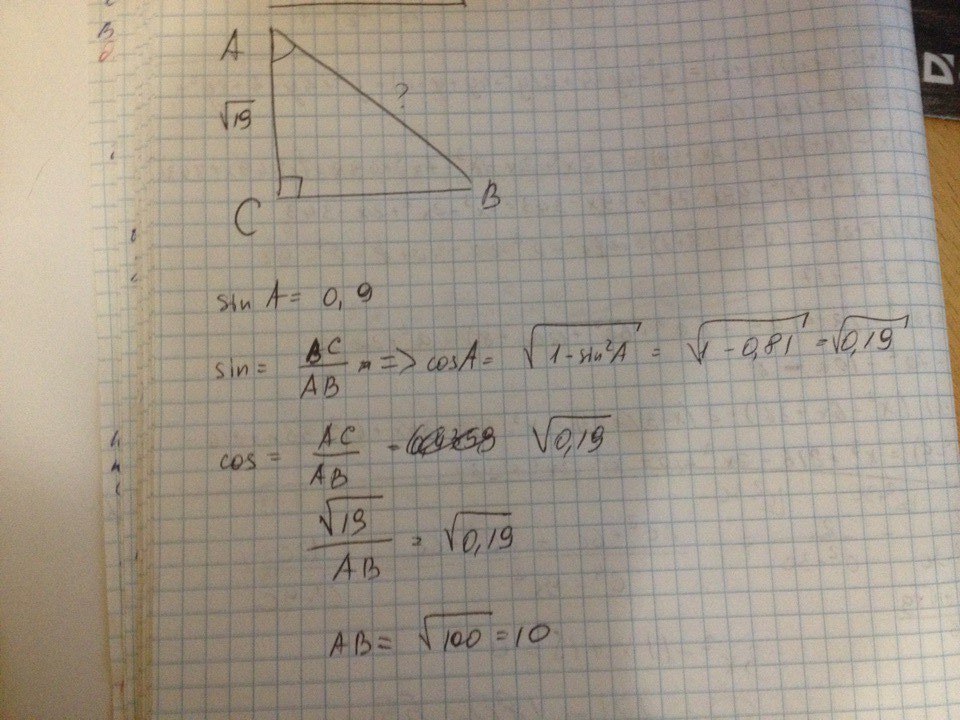 A
?
√19
C
B
sin A = 0,9
sin = BC/AB => cosA = √(1-sin²A) = √(1-0,81) = √0,19
cos = AC/AB = √0,19
√19/AB = √0,19
AB = √100 = 10